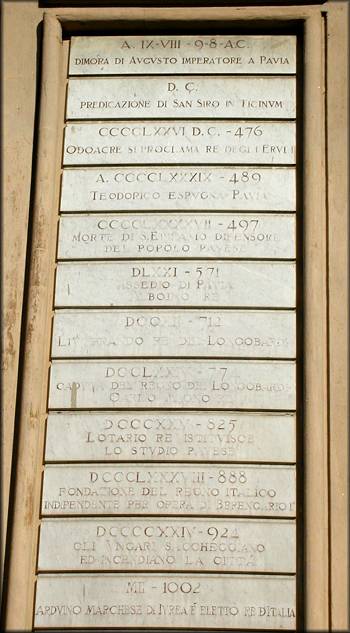 A. IX-VIII - 9-8-A.C.
DIMORA DI AVGVSTO IMPERATORE A PAVIA
D. C.
PREDICAZIONE DI SAN SIRO IN TICINVM
CCCCLXXVI D.C. - 476
ODOACRE SI PROCLAMA RE DEGLI ERVLI
A. CCCCLXXXIX - 489
TEODORICO ESPVGNA PAVIA
CCCCLXXXXVII - 497
MORTE DI S. EPIFANIO DIFENSORE
DEL POPOLO PAVESE
DLXXI - 571
ASSEDIO DI PAVIA
ALBOINO RE
DCCXII - 712
LIVTPRANDO RE DEI LONGOBARDI
DCCLXXIV - 774
CADVTA DEL REGNO DEI LONGOBARDI
CARLO MAGNO
DCCCXXV - 825
LOTARIO RE ISTITVISCE
LO STVDIO PAVESE
DCCCLXXXVIII - 888
FONDAZIONE DEL REGNO ITALICO
INDIPENDENTE PER OPERA DI BERENGARIO I°
DCCCCXXIV - 924
GLI VNGARI SACCHEGGIANO
ED INCENDIANO LA CITTÀ
MII - 1002
ARDVINO MARCHESE DI IVREA È ELETTO RE D'ITALIA